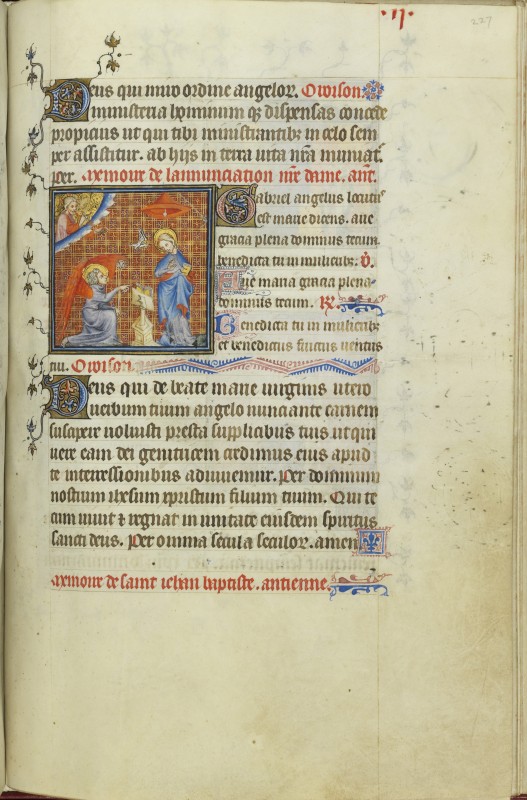 .17.
227
Deus qui miro ordine angelor. Orrison.
ministeria hominum q; dispensas concede
propicius ut qui tibi ministrantib; in celo sem
per assistitur. ab hijs in terra vita nr̃a muniat̃.
per. Memoire de lannunciation nr̃e dame. ant̃.
Gabriel angelus locutus
est marie dicens. aue
gracia plena dominus tecum
benedicta tu in mulierib;. V̊.
Aue maria gracia plena
dominus tecum. R̃.
Benedicta tu in mulierib;
et benedictus fructus uentris
tui. Orrison.
Deus qui de beate marie uirginis utero
uerbum tuum angelo nunciante carnem
suscipere uoluisti presta supplicibus tuis ut qui
uere eam dei genitricem credimus eius apud
te intercessionibus adiuuemur. Per dominum
nostrum ihesum xpristum filium tuum. Qui te
cum uiuit ⁊ regnat in unitate eiusdem spiritus
sancti deus. Per omnia secula seculor. amen
Memoire de saint iehan baptiste. antienne.